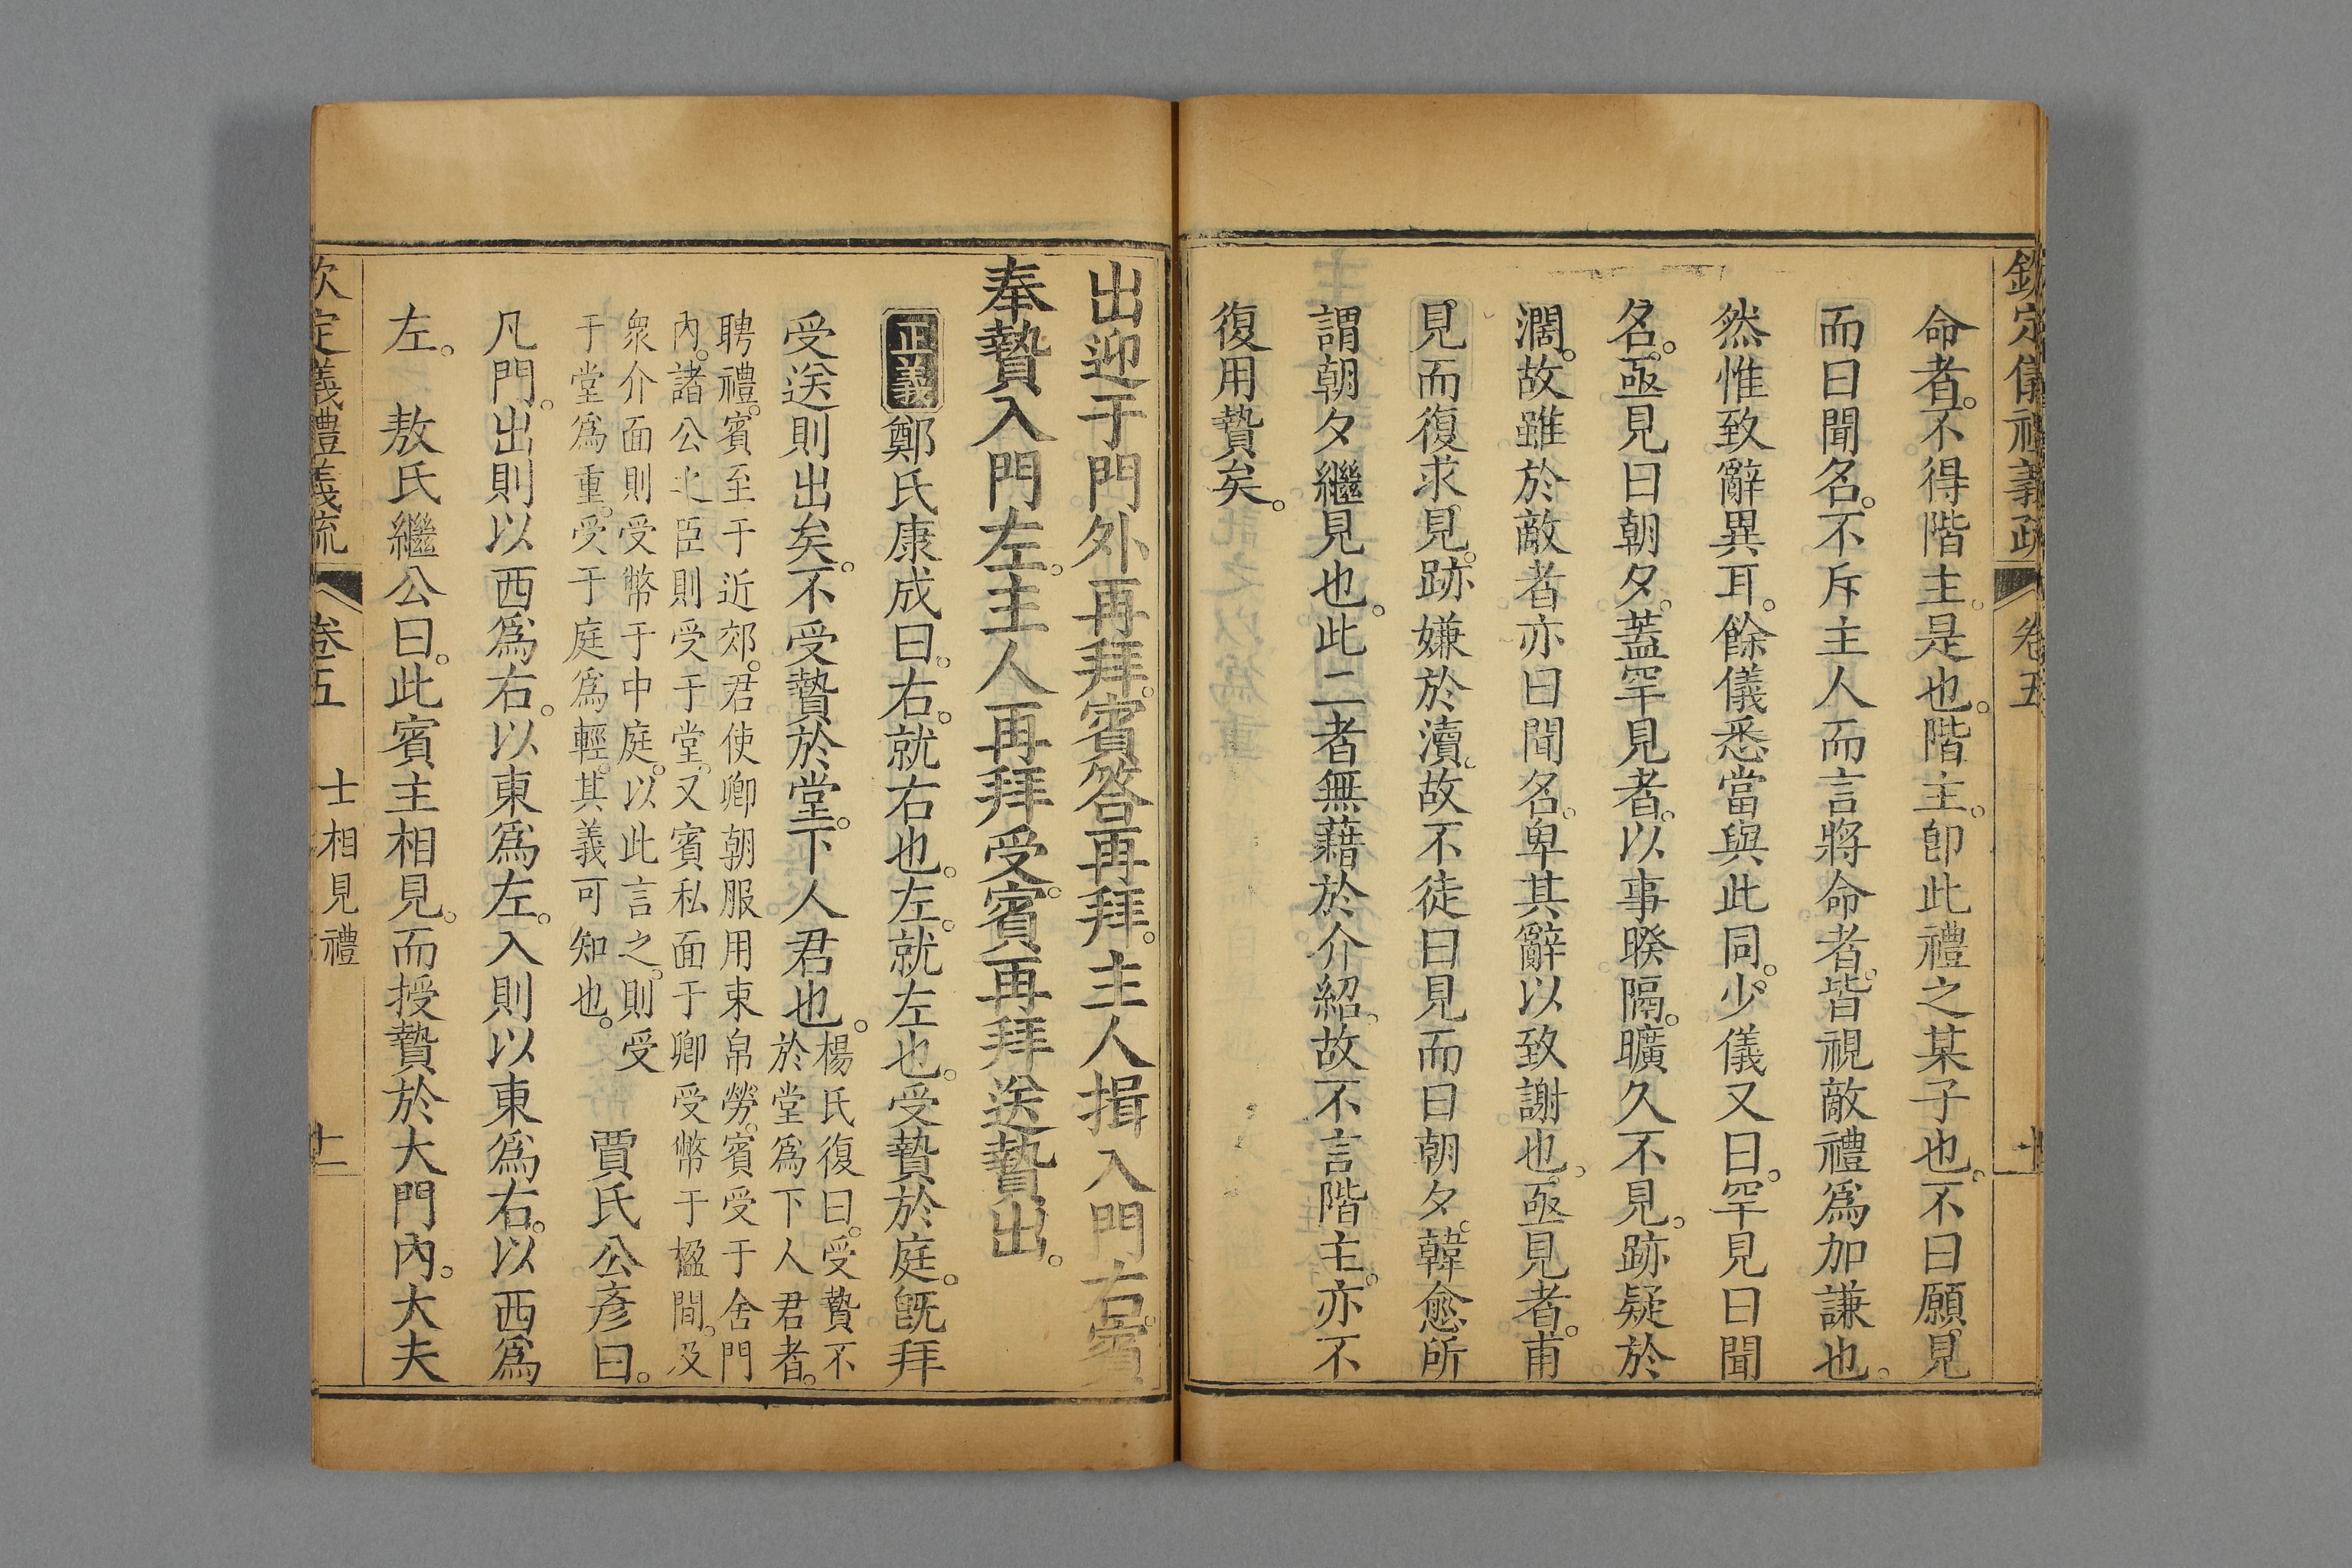 欽定儀禮義疏 卷五 十
命者。不得階主。是也。階主。卽此禮之某子也。不曰願見
而曰聞名。不斥主人而言將命者。皆視敵禮爲加謙也。
然惟致辭異耳。餘儀悉當與此同。少儀又曰。罕見曰聞
名。亟見曰朝夕。蓋罕見者。以事暌隔。曠久不見。跡疑於
濶。故雖於敵者亦曰聞名。卑其辭以致謝也。亟見者。甫
見而復求見。跡嫌於瀆。故不徒曰見而曰朝夕。韓愈所
謂朝夕繼見也。此二者無藉於介紹。故不言階主。亦不
復用贄矣。
出迎于門外再拜。賓答再拜。主人揖入門右。賓
奉贄入門左。主人再拜受。賓再拜送贄出。
正義鄭氏康成曰。右。就右也。左。就左也。受贄於庭。旣拜
受送則出矣。不受贄於堂。下人君也。楊氏復曰。受贄不
於堂爲下人君者。
聘禮。賓至于近郊。君使卿朝服用束帛勞。賓受于舍門
內。諸公之臣則受于堂。又賓私面于卿受幣于楹間。及
衆介面則受幣于中庭。以此言之。則受
于堂爲重。受于庭爲輕。其義可知也。
賈氏公彥曰。
凡門。出則以西爲右。以東爲左。入則以東爲右。以西爲
左。 敖氏繼公曰。此賓主相見。而授贄於大門內。大夫
欽定儀禮義疏 卷五 士相見禮 十一